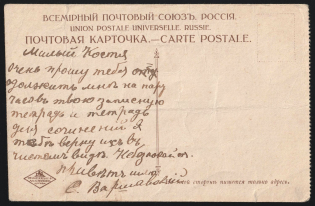 ВСЕМІРНЫЙ ПОЧТОВЫЙ СОЮЗЪ. РОССІЯ.
UNION POSTALE UNIVERSELLE. RUSSIE.
ПОЧТОВАЯ КАРТОЧКА.—CARTE POSTALE.
Милый Костя
очень прошу тебя
одолжить мне на пару
часовъ твою записную
тетрадь и тетрадь
для сочинений я
тебѣ верну ихъ въ
чистомъ видѣ.
привѣтъ
С. Варшавский
стороне пишется только адресъ.